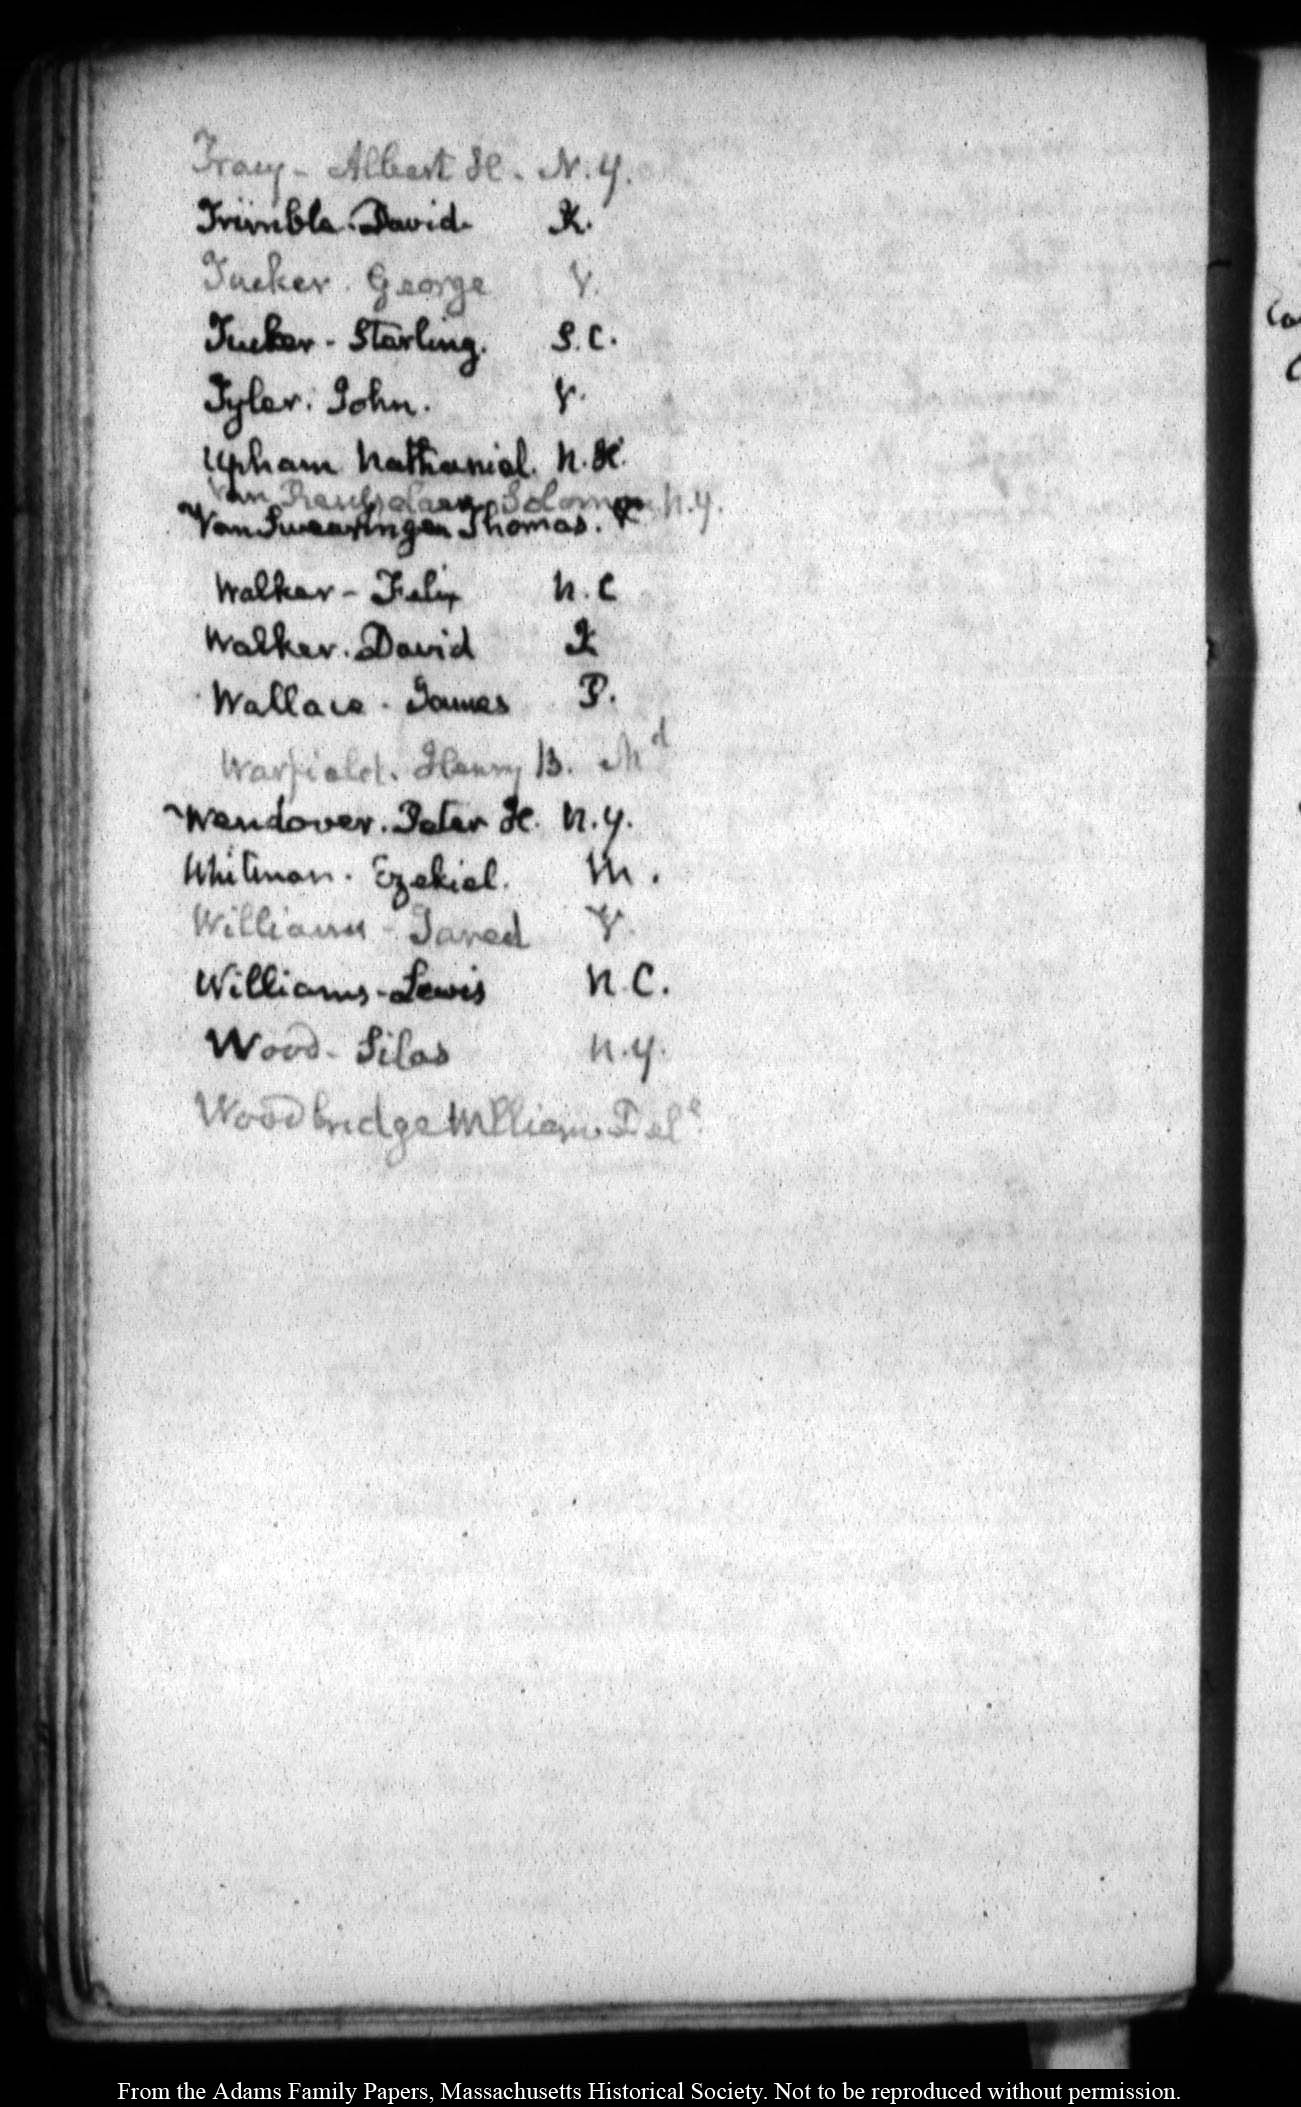 Tracy - Albert H. N.Y.
Trimble. David. K.
Tucker. George V.
Tucker - Starling. S.C.
Tyler. John. V.
Upham Nathaniel. N.H.
Van Rensselaer Solomon N.Y.
Van Swearingen Thomas. V
Walker - Felix N.C
Walker. David K
Wallace. James P.
Warfield. Henry B. Md
Wendover. Peter H. N.Y.
Whitman. Ezekiel. M.
Williams - Jared V.
Williams - Lewis N.C.
Wood - Silas N.Y.
Woodbridge William. Dele
From the Adams Family Papers, Massachusetts Historical Society. Not to be reproduced without permission.